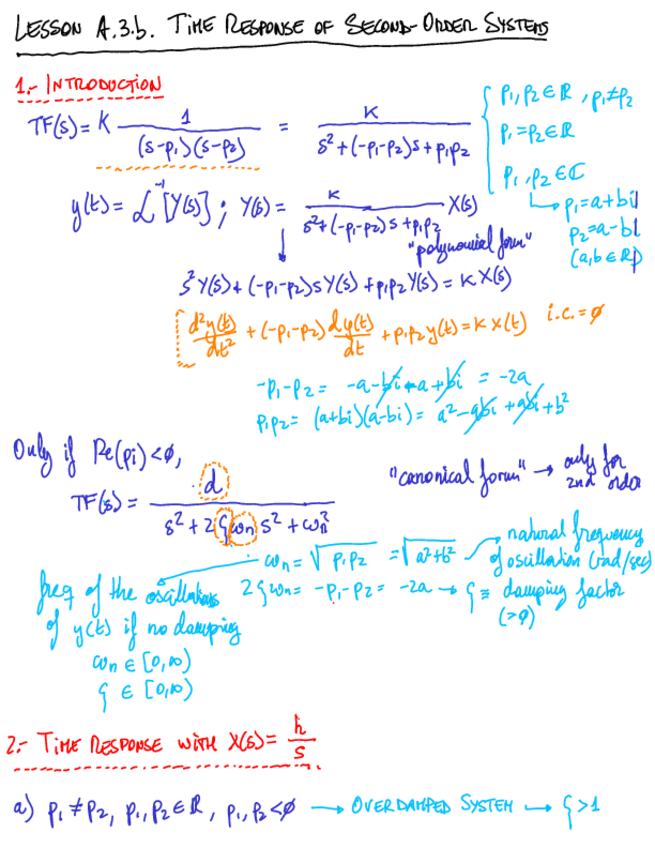 LESSON A.3.b. TIME RESPONSE OF SECOND-ORDER SYSTEMS
1.- INTRODUCTION
TF(s) = K 1/((s-p₁)(s-p₂)) = K/(s²+(-p₁-p₂)s+p₁p₂) { p₁,p₂∈ℝ, p₁≠p₂
p₁=p₂∈ℝ
p₁,p₂∈ℂ
↳ p₁=a+bi
p₂=a-bi
(a,b∈ℝ)
y(t) = ℒ⁻¹[Y(s)] ; Y(s) = K/(s²+(-p₁-p₂)s+p₁p₂) X(s)
"polynomial form"
s²Y(s)+(-p₁-p₂)sY(s)+p₁p₂Y(s) = KX(s)
[ d²y(t)/dt² + (-p₁-p₂) dy(t)/dt + p₁p₂y(t) = Kx(t) i.c.=∅
-p₁-p₂ = -a-bi-a+bi = -2a
p₁p₂ = (a+bi)(a-bi) = a²-abi+abi+b²
Only if Re(pi)<∅,
TF(s) = d/(s²+2ζωn s²+ωn²) "canonical form" → only for 2nd order
ωn = √(p₁p₂) = √(a²+b²) natural frequency of oscillation (rad/sec)
2ζωn = -p₁-p₂ = -2a → ζ ≡ damping factor (>∅)
freq of the oscillations
of y(t) if no damping
ωn ∈ [0,∞)
ζ ∈ [0,∞)
2.- TIME RESPONSE WITH X(s) = h/s
a) p₁≠p₂, p₁,p₂∈ℝ, p₁,p₂<∅ → OVERDAMPED SYSTEM → ζ>1